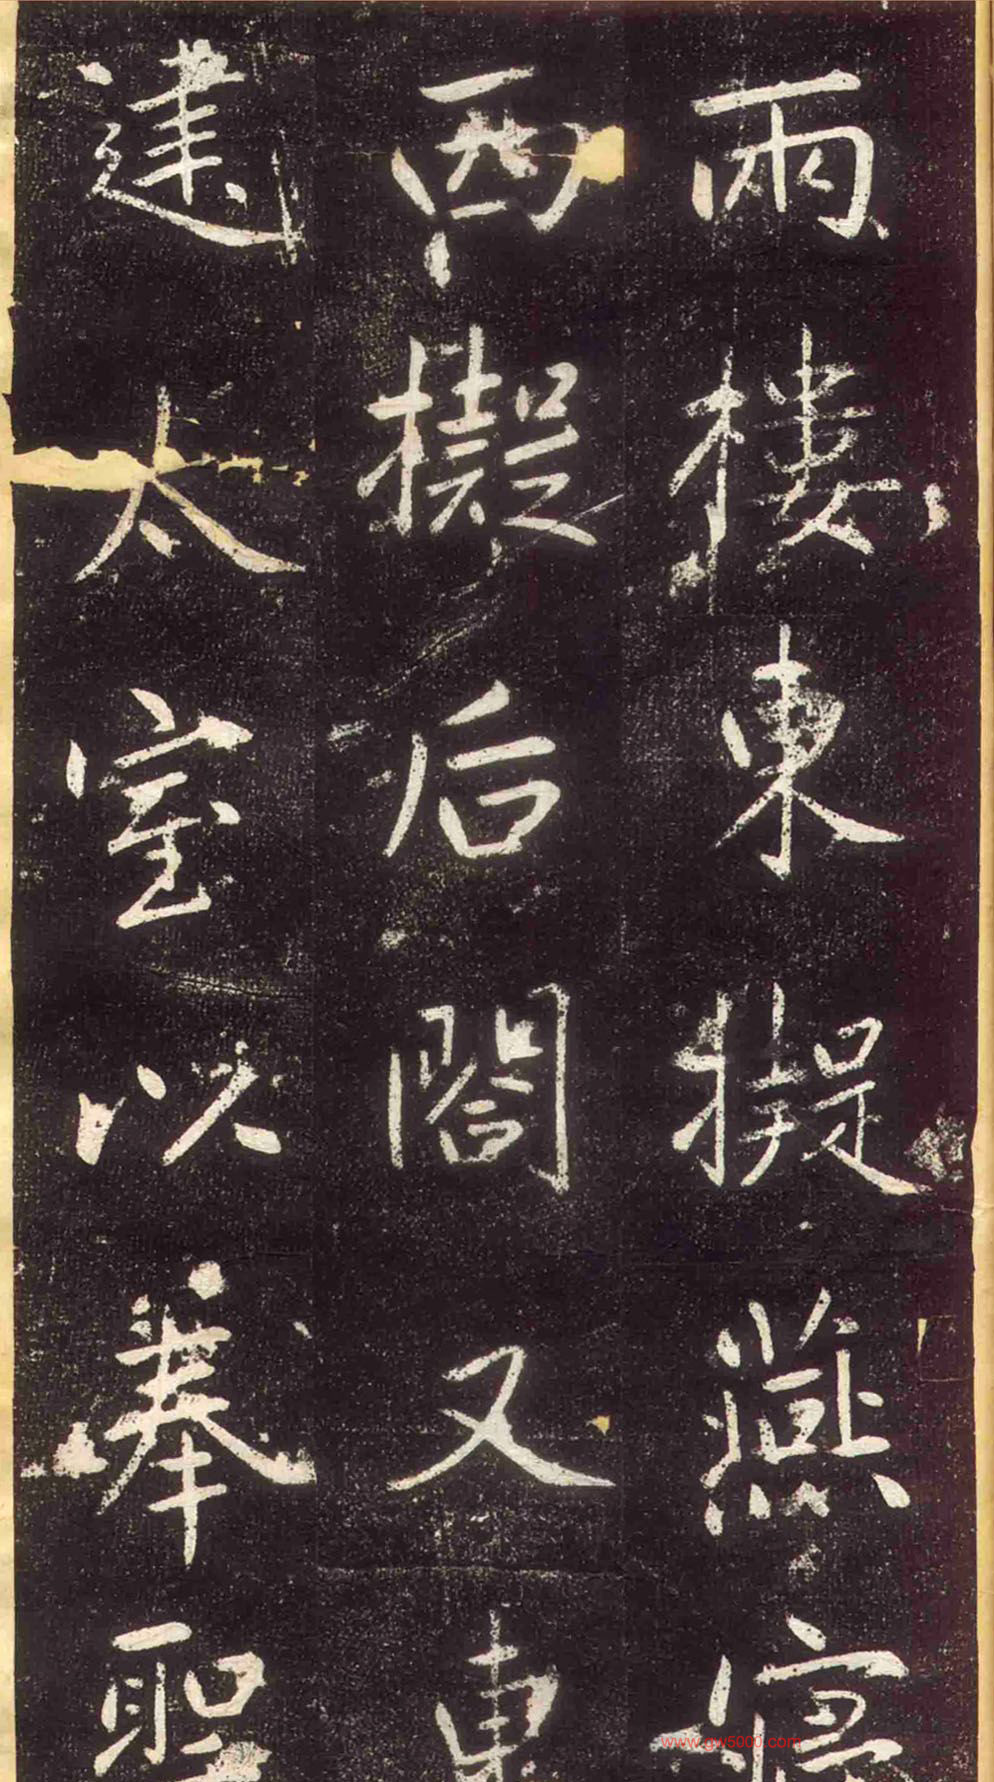 兩樓東擬燕寢
西擬后閣又東
建太室以奉聖
www.gw5000.com